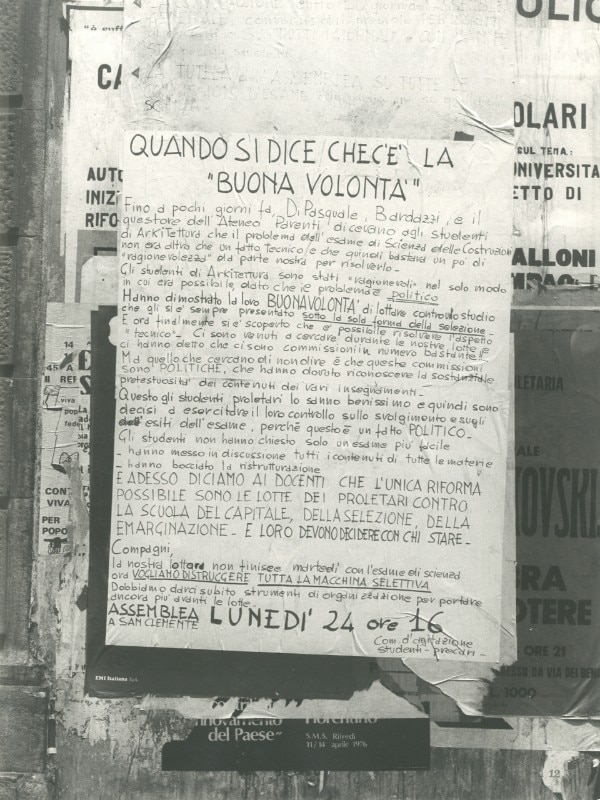 QUANDO SI DICE CHE C'E' LA
"BUONA VOLONTA'"
Fino a pochi giorni fa, Di Pasquale, Bardazzi, e il
questore dell'Ateneo Parenti dicevano agli studenti
di Arkitettura che il problema dell'esame di Scienza delle Costruzioni
non era altro che un fatto tecnico e che quindi bastava un po' di
"ragionevolezza" da parte nostra per risolverlo-
Gli studenti di Arkitettura sono stati "ragionevoli" nel solo modo
in cui era possibile, dato che il problema è politico
Hanno dimostrato la loro BUONAVOLONTA' di lottare contro lo studio
che gli si è sempre presentato sotto la sola forma della selezione-
E ora finalmente si è scoperto che è possibile risolvere l'aspetto
"tecnico". Ci sono venuti a cercare durante le nostre lotte e
ci hanno detto che ci sono commissioni in numero bastante!!
Ma quello che cercano di non dire è che queste commissioni
sono POLITICHE, che hanno dovuto riconoscere la sostanziale
pretestuosità dei contenuti dei vari insegnamenti-
Questo gli studenti proletari lo sanno benissimo e quindi sono
decisi a esercitare il loro controllo sullo svolgimento e sugli
esiti dell'esame, perché questo è un fatto POLITICO-
Gli studenti non hanno chiesto solo un esame più facile
- hanno messo in discussione tutti i contenuti di tutte le materie
- hanno bocciato la ristrutturazione
E ADESSO DICIAMO AI DOCENTI CHE L'UNICA RIFORMA
POSSIBILE SONO LE LOTTE DEI PROLETARI CONTRO
LA SCUOLA DEL CAPITALE, DELLA SELEZIONE, DELLA
EMARGINAZIONE- E LORO DEVONO DECIDERE CON CHI STARE-
Compagni,
la nostra lotta non finisce martedì con l'esame di scienza
ora VOGLIAMO DISTRUGGERE TUTTA LA MACCHINA SELETTIVA
Dobbiamo darci subito strumenti di organizzazione per portare
ancora più avanti le lotte-
ASSEMBLEA LUNEDI' 24 ore 16
A SAN CLEMENTE
Com. d'agitazione
studenti-precari-
CA
AUTO
INIZI
RIFO
OLARI
SUL TEMA:
UNIVERSITA
ETTO DI
ALLONI
LETARIA
OVSKIJ
BRA
OTERE
ORE 21
L. 1000
14
CONT
VIVA
PER
POPO
EMI Italiana
nnovamento
del Paese"
Fiorentino
S.M.S. Rifredi
11/14 aprile 1976
12